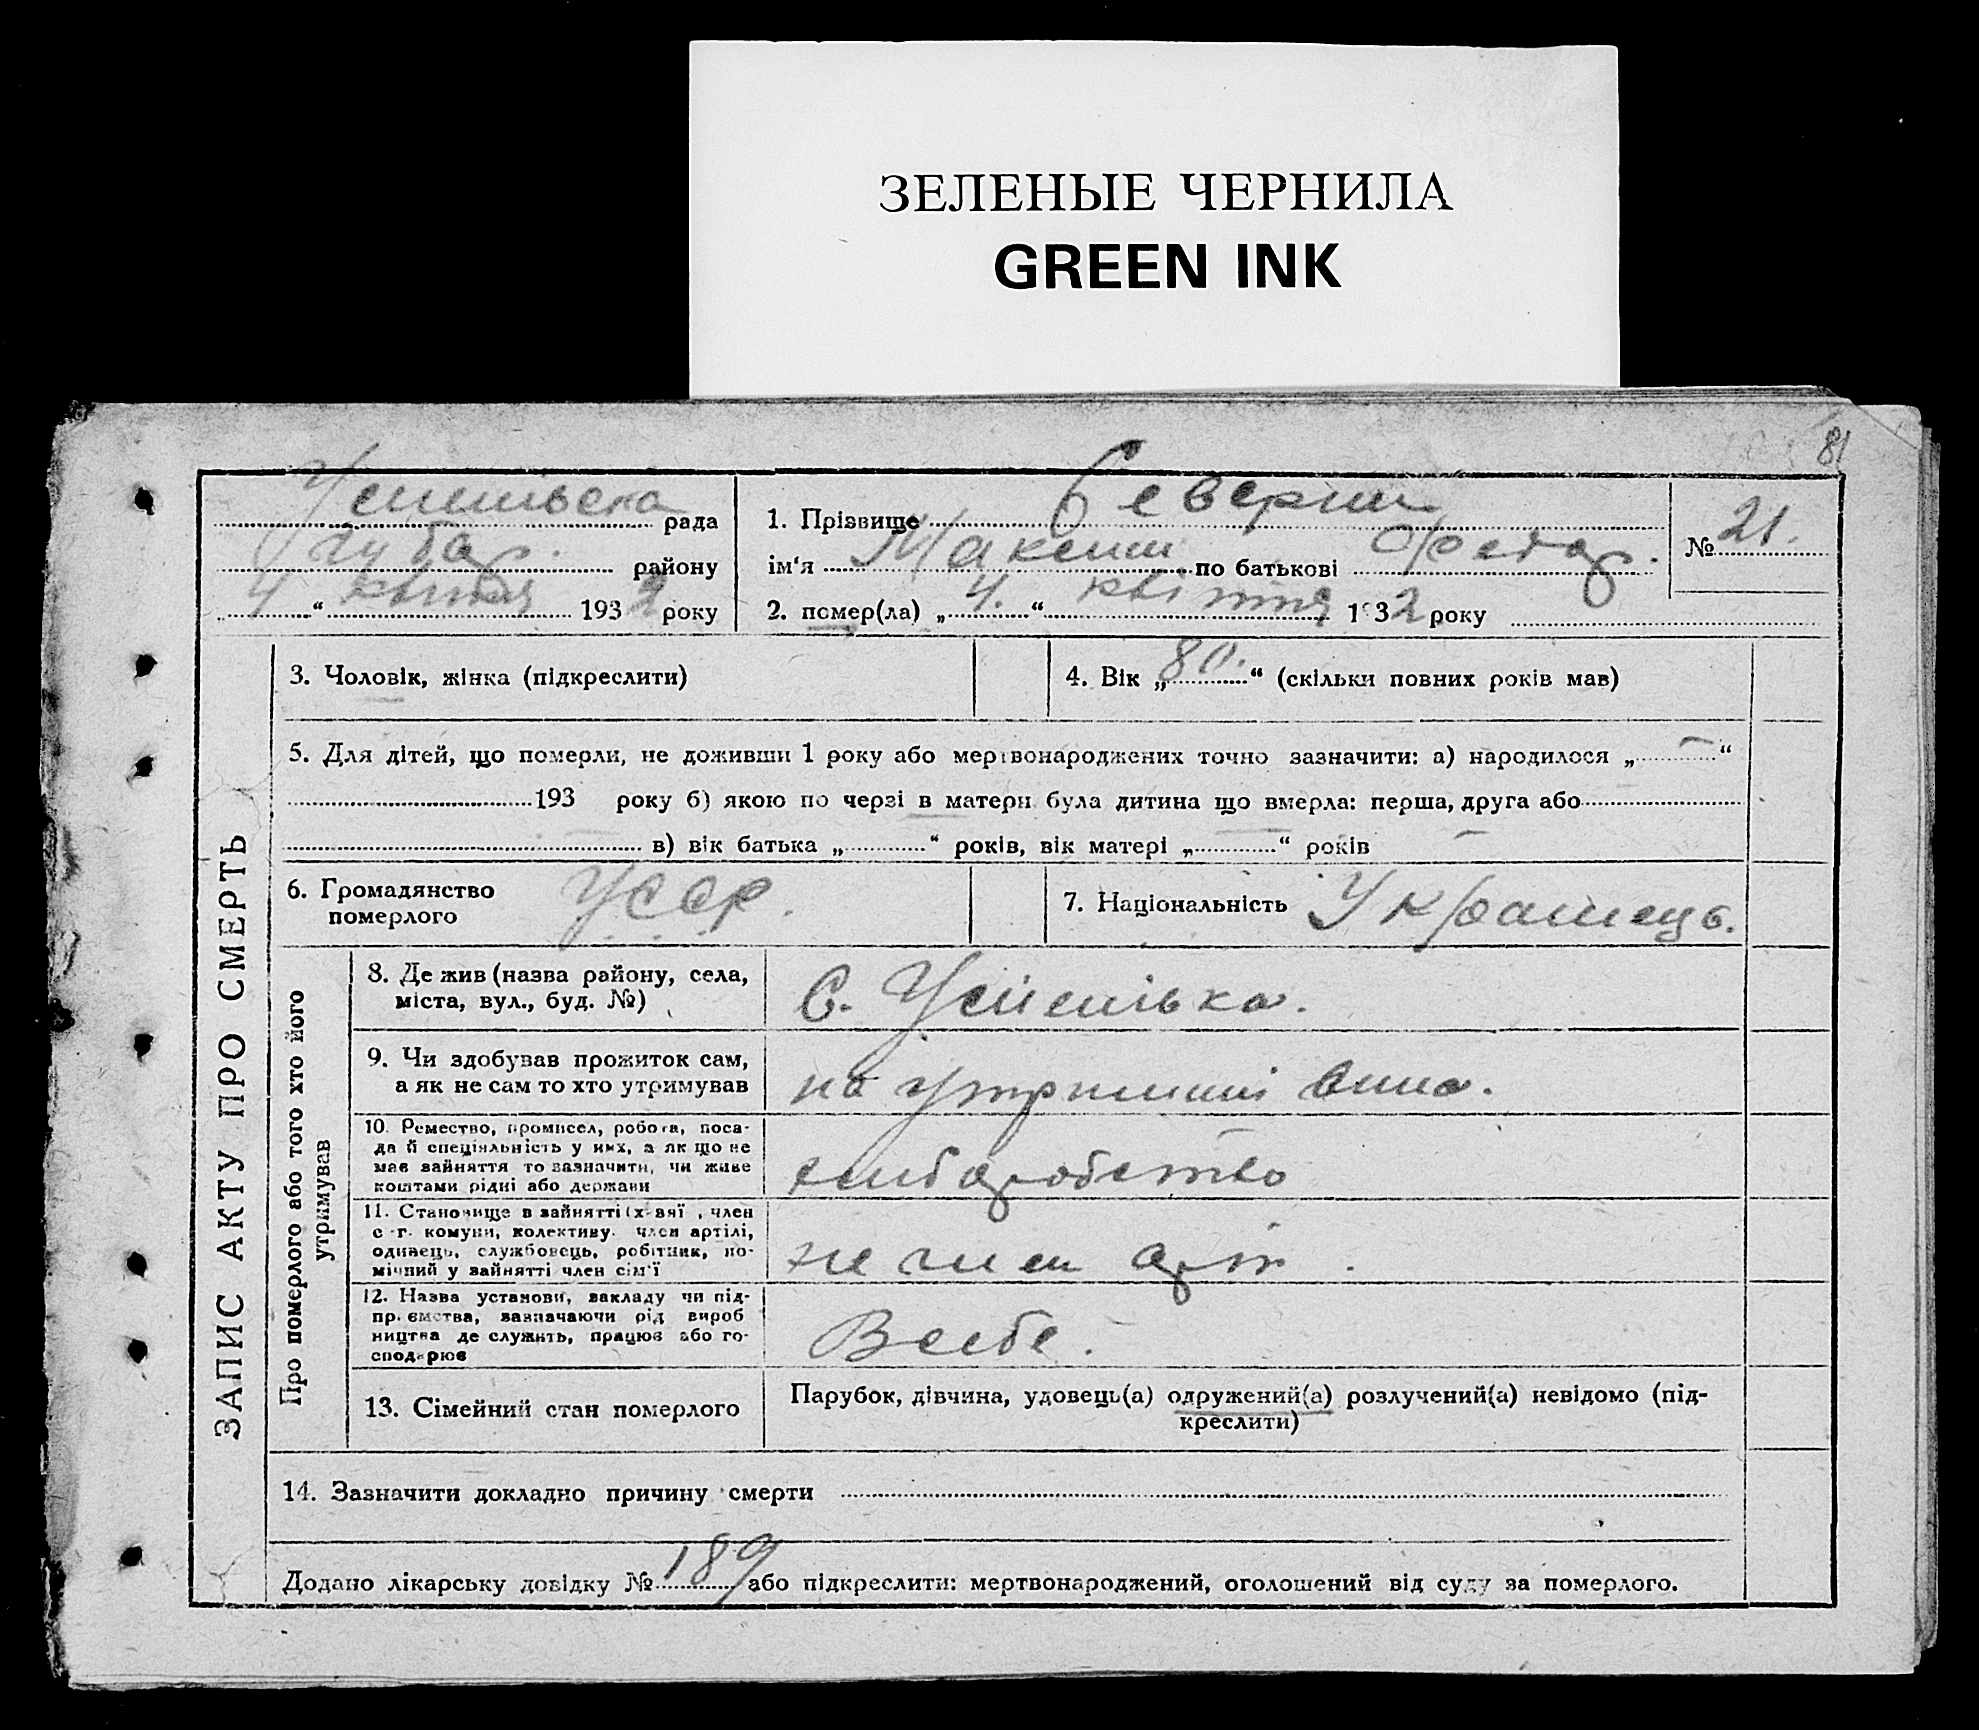 ЗЕЛЕНЫЕ ЧЕРНИЛА
GREEN INK
81
рада
району
4 “ квітня 1932 року
1. Прізвище Северин
ім‘я Максим по батькові Федор.
2. помер(ла) „ 4. “ квітня 1932 року
№ 21.
3. Чоловік, жінка (підкреслити)
4. Вік „ 80. “ (скільки повних років мав)
5. Для дітей, що померли, не доживши 1 року або мертвонароджених точно зазначити: а) народилося „ — “
193 року б) якою по черзі в матери була дитина що вмерла: перша, друга або
в) вік батька „ “ років, вік матері „ “ років
6. Громадянство
померлого
УССР.
7. Національність Українець.
ЗАПИС АКТУ ПРО СМЕРТЬ
Про померлого або того хто його
утримував
8. Де жив (назва району, села,
міста, вул., буд. №)
С. Успенівка.
9. Чи здобував прожиток сам,
а як не сам то хто утримував
на утриманні сина.
10. Ремество, промисел, робота, поса-
да й спеціяльність у них, а як що не
має зайняття то зазначити, чи живе
коштами рідні або держави
хліборобство
11. Становище в зайнятті (х-вяї , член
с.-г. комуни, колективу, член артілі,
одинець, службовець, робітник, по-
мічний у зайнятті член сім'ї
не член арт.
12. Назва установи, закладу чи під-
приємства, зазначаючи рід вироб
ництва де служить, працює або го-
сподарює
В себе.
13. Сімейний стан померлого
Парубок, дівчина, удовець(а) одружений(а) розлучений(а) невідомо (під-
креслити)
14. Зазначити докладно причину смерти
Додано лікарську довідку № 189 або підкреслити: мертвонароджений, оголошений від суду за померлого.